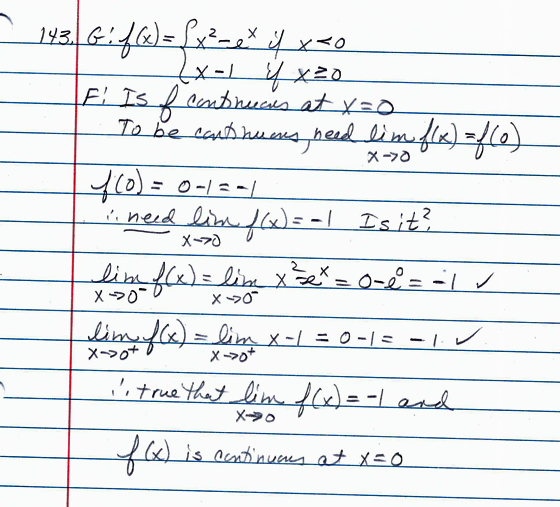 143. G: f(x) = { x² - eˣ if x < 0
x - 1 if x ≥ 0
F: Is f continuous at x = 0
To be continuous, need lim f(x) = f(0)
x→0
f(0) = 0 - 1 = -1
∴ need lim f(x) = -1 Is it?
x→0
lim f(x) = lim x² - eˣ = 0 - e⁰ = -1 ✓
x→0⁻ x→0⁻
lim f(x) = lim x - 1 = 0 - 1 = -1 ✓
x→0⁺ x→0⁺
∴ true that lim f(x) = -1 and
x→0
f(x) is continuous at x = 0